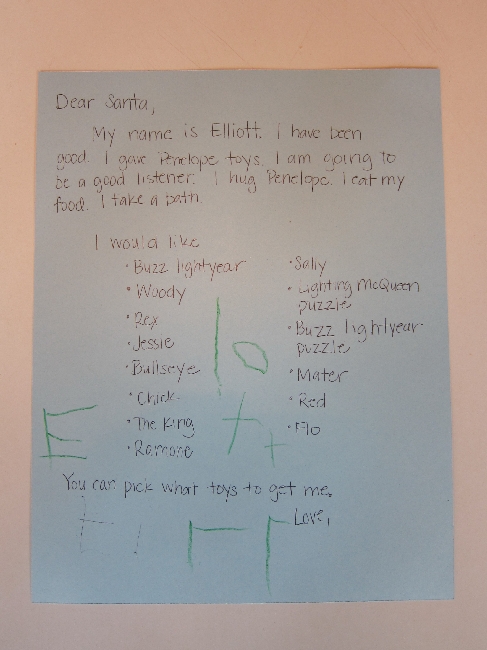 Dear Santa,
My name is Elliott. I have been
good. I gave Penelope toys. I am going to
be a good listener. I hug Penelope. I eat my
food. I take a bath.
I would like
• Buzz lightyear
• Woody
• Rex
• Jessie
• Bullseye
• Chick
• The King
• Ramone
• Sally
• Lighting McQueen
puzzle
• Buzz lightyear
puzzle
• Mater
• Red
• Flo
You can pick what toys to get me.
Love,